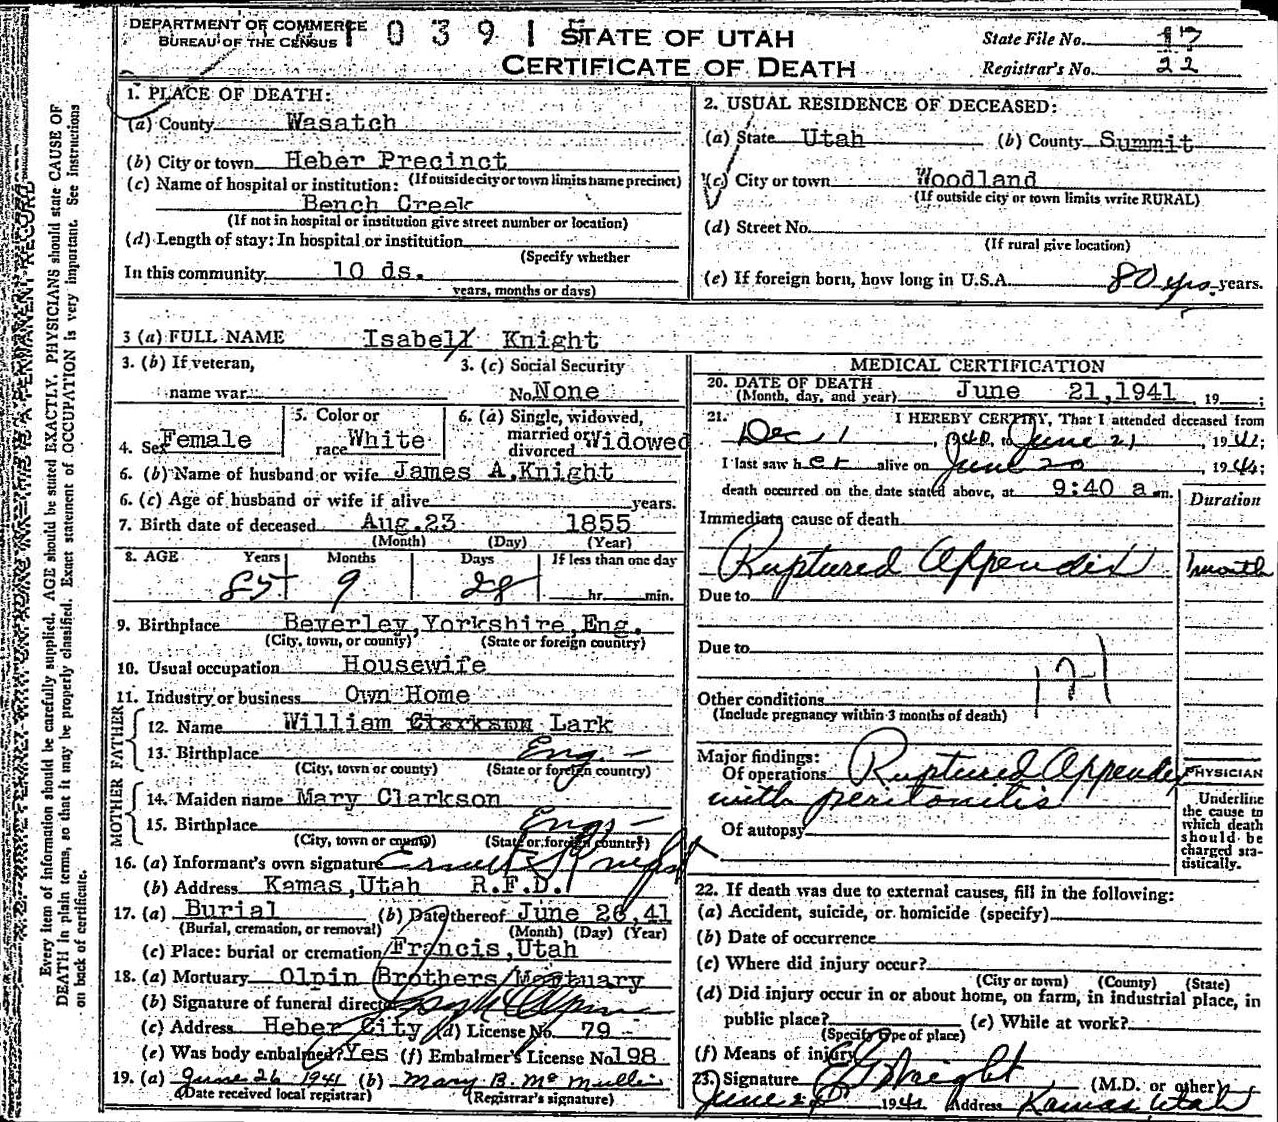 DEPARTMENT OF COMMERCE
BUREAU OF THE CENSUS
1 0 3 9 1 5
STATE OF UTAH
CERTIFICATE OF DEATH
State File No. 17
Registrar's No. 22
Every item of information should be carefully supplied. AGE should be stated EXACTLY. PHYSICIANS should state CAUSE OF
DEATH in plain terms, so that it may be properly classified. Exact statement of OCCUPATION is very important. See instructions
on back of certificate.
1. PLACE OF DEATH:
(a) County Wasatch
(b) City or town Heber Precinct
(If outside city or town limits name precinct)
(c) Name of hospital or institution:
Bench Creek
(If not in hospital or institution give street number or location)
(d) Length of stay: In hospital or institution
(Specify whether
In this community 10 ds.
years, months or days)
2. USUAL RESIDENCE OF DECEASED:
(a) State Utah (b) County Summit
(c) City or town Woodland
(If outside city or town limits write RURAL)
(d) Street No.
(If rural give location)
(e) If foreign born, how long in U.S.A. 80 yrs. years.
3 (a) FULL NAME Isabell Knight
3. (b) If veteran,
name war
3. (c) Social Security
No. None
4. Sex Female
5. Color or
race White
6. (a) Single, widowed,
married or
divorced Widowed
6. (b) Name of husband or wife James A. Knight
6. (c) Age of husband or wife if alive years.
7. Birth date of deceased Aug. 23 1855
(Month) (Day) (Year)
8. AGE Years Months Days If less than one day
85 9 28 hr. min.
9. Birthplace Beverley, Yorkshire, Eng.
(City, town, or county) (State or foreign country)
10. Usual occupation Housewife
11. Industry or business Own Home
FATHER
12. Name William Clarkson Lark
13. Birthplace Eng. -
(City, town or county) (State or foreign country)
MOTHER
14. Maiden name Mary Clarkson
15. Birthplace Eng. -
(City, town or county) (State or foreign country)
16. (a) Informant's own signature Ernest Knight
(b) Address Kamas, Utah R.F.D.
17. (a) Burial (b) Date thereof June 26, 41
(Burial, cremation, or removal) (Month) (Day) (Year)
(c) Place: burial or cremation Francis, Utah
18. (a) Mortuary Olpin Brothers Mortuary
(b) Signature of funeral director Olpin
(c) Address Heber City (d) License No. 79
(e) Was body embalmed? Yes (f) Embalmer's License No 198
19. (a) June 26 1941 (b) Mary B. McMullin
(Date received local registrar) (Registrar's signature)
MEDICAL CERTIFICATION
20. DATE OF DEATH June 21, 1941, 19 ;
(Month, day, and year)
21. I HEREBY CERTIFY, That I attended deceased from
Dec 1, 1940, to June 21, 1941;
I last saw her alive on June 20, 1941;
death occurred on the date stated above, at 9:40 a.m.
Duration
Immediate cause of death
Ruptured Appendix 1 month
Due to
Due to
121
Other conditions
(Include pregnancy within 3 months of death)
Major findings:
Of operations Ruptured Appendix
with peritonitis
Of autopsy
PHYSICIAN
Underline
the cause to
which death
should be
charged sta-
tistically.
22. If death was due to external causes, fill in the following:
(a) Accident, suicide, or homicide (specify)
(b) Date of occurrence
(c) Where did injury occur?
(City or town) (County) (State)
(d) Did injury occur in or about home, on farm, in industrial place, in
public place? (e) While at work?
(Specify type of place)
(f) Means of injury
23. Signature (M.D. or other)
June 1941 Address Kamas, Utah